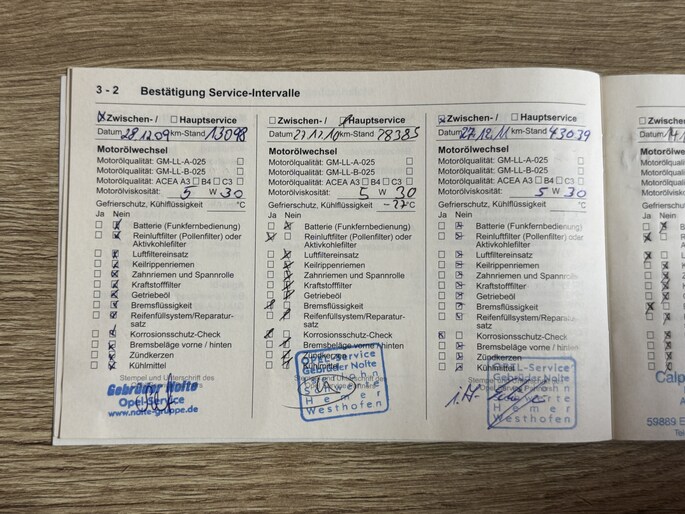 3 - 2 Bestätigung Service-Intervalle
Zwischen- / Hauptservice
Datum 28.12.09 km-Stand 13098
Motorölwechsel
Motorölqualität: GM-LL-A-025
Motorölqualität: GM-LL-B-025
Motorölqualität: ACEA A3 B4 C3
Motorölviskosität: 5 W 30
Gefrierschutz, Kühlflüssigkeit °C
Ja Nein
Batterie (Funkfernbedienung)
Reinluftfilter (Pollenfilter) oder
Aktivkohlefilter
Luftfiltereinsatz
Keilrippenriemen
Zahnriemen und Spannrolle
Kraftstofffilter
Getriebeöl
Bremsflüssigkeit
Reifenfüllsystem/Reparatur-
satz
Korrosionsschutz-Check
Bremsbeläge vorne / hinten
Zündkerzen
Kühlmittel
Stempel und Unterschrift des
Gebrüder Nolte
Opel-Service
www.nolte-gruppe.de
Zwischen- / Hauptservice
Datum 27.12.10 km-Stand 28385
Motorölwechsel
Motorölqualität: GM-LL-A-025
Motorölqualität: GM-LL-B-025
Motorölqualität: ACEA A3 B4 C3
Motorölviskosität: 5 W 30
Gefrierschutz, Kühlflüssigkeit -27°C
Ja Nein
Batterie (Funkfernbedienung)
Reinluftfilter (Pollenfilter) oder
Aktivkohlefilter
Luftfiltereinsatz
Keilrippenriemen
Zahnriemen und Spannrolle
Kraftstofffilter
Getriebeöl
Bremsflüssigkeit
Reifenfüllsystem/Reparatur-
satz
Korrosionsschutz-Check
Bremsbeläge vorne / hinten
Zündkerzen
Kühlmittel
OPEL-Service
Gebrüder Nolte
Iserlohn
Hemer
Westhofen
Zwischen- / Hauptservice
Datum 27.12.11 km-Stand 43039
Motorölwechsel
Motorölqualität: GM-LL-A-025
Motorölqualität: GM-LL-B-025
Motorölqualität: ACEA A3 B4 C3
Motorölviskosität: 5 W 30
Gefrierschutz, Kühlflüssigkeit °C
Ja Nein
Batterie (Funkfernbedienung)
Reinluftfilter (Pollenfilter) oder
Aktivkohlefilter
Luftfiltereinsatz
Keilrippenriemen
Zahnriemen und Spannrolle
Kraftstofffilter
Getriebeöl
Bremsflüssigkeit
Reifenfüllsystem/Reparatur-
satz
Korrosionsschutz-Check
Bremsbeläge vorne / hinten
Zündkerzen
Kühlmittel
OPEL-Service
Gebrüder Nolte
Hemer
Westhofen
Zwisch
Datum
Motorölw
Motorölqu
Motorölqu
Motorölqu
Motorölvis
Gefriersch
Ja Nein
Calp
59889 E